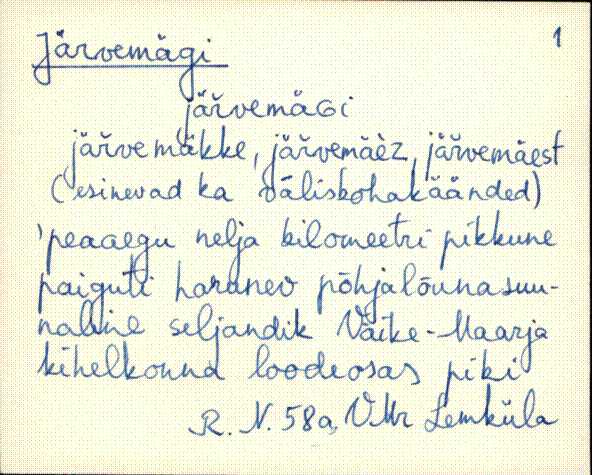 Järvemägi 1
jäřvemäGi
jäřvemäkke, jäřvemäèz, jäřvemäest
(esinevad ka väliskohakäänded)
'peaaegu nelja kilomeetri pikkune
paiguti haranev põhjalõunasuu-
naline seljandik Väike-Maarja
kihelkonna loodeosas piki
R. N. 58a, VMr Lemküla